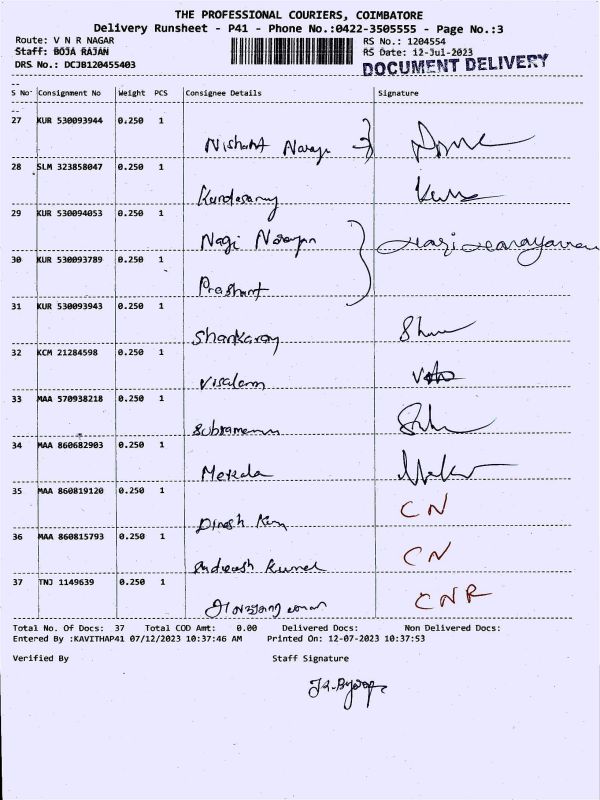 THE PROFESSIONAL COURIERS, COIMBATORE
Delivery Runsheet - P41 - Phone No.:0422-3505555 - Page No.:3
Route: V N R NAGAR
RS No.: 1204554
Staff: BOJA RAJAN
RS Date: 12-Jul-2023
DRS No.: DCJB120455403
DOCUMENT DELIVERY
S No Consignment No Weight PCS Consignee Details Signature
27 KUR 530093944 0.250 1
Nishant
28 SLM 323858047 0.250 1
29 KUR 530094053 0.250 1
Nagi Narayan
30 KUR 530093789 0.250 1
Prashant
31 KUR 530093943 0.250 1
32 KCM 21284598 0.250 1
33 MAA 570938218 0.250 1
34 MAA 860682903 0.250 1
35 MAA 860819120 0.250 1 CN
Dinesh
36 MAA 860815793 0.250 1 CN
37 TNJ 1149639 0.250 1 CNR
Total No. Of Docs: 37 Total COD Amt: 0.00 Delivered Docs: Non Delivered Docs:
Entered By :KAVITHAP41 07/12/2023 10:37:46 AM Printed On: 12-07-2023 10:37:53
Verified By Staff Signature